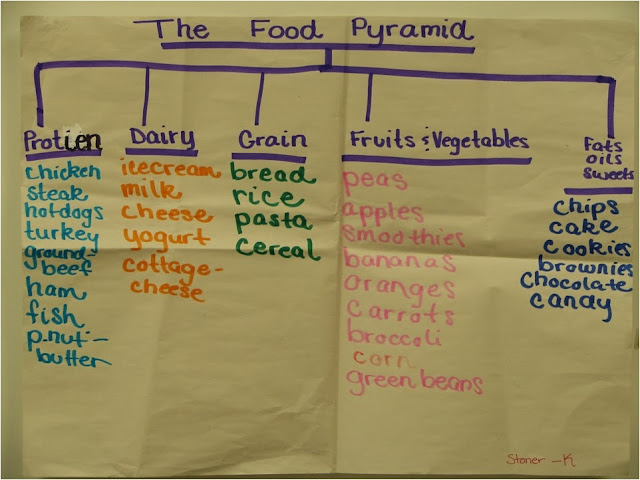 The Food Pyramid
Protien
chicken
steak
hotdogs
turkey
ground-
beef
ham
fish
p.nut-
butter
Dairy
icecream
milk
cheese
yogurt
cottage-
cheese
Grain
bread
rice
pasta
cereal
Fruits & Vegetables
peas
apples
smoothies
bananas
oranges
carrots
broccoli
corn
green beans
Fats
oils
sweets
chips
cake
cookies
brownies
chocolate
candy
Stoner -K